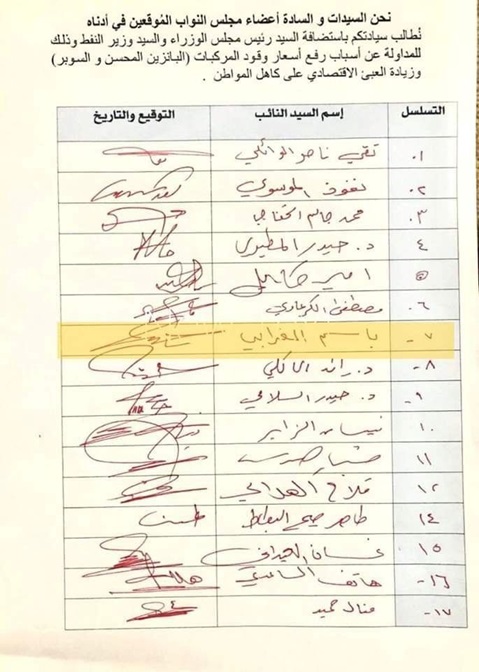 نحن السيدات و السادة أعضاء مجلس النواب المُوقعين في أدناه
نُطالب سيادتكم باستضافة السيد رئيس مجلس الوزراء والسيد وزير النفط وذلك
للمداولة عن أسباب رفع أسعار وقود المركبات (البانزين المحسن و السوبر)
وزيادة العبئ الاقتصادي على كاهل المواطن .
التسلسل إسم السيد النائب التوقيع والتاريخ
٠١ تقي ناصر الوائلي
٠٢ نفوذ الموسوي
٠٣ محمد جاسم الخفاجي
٤ د. حيدر المطيري
٥ امير كامل
٠٦ مصطفى الكرعاوي
-٧ باسم الغرابي
-٨ د. رائد المالكي
-٩ د. حيدر السلامي
١٠ نيسان الزاير
١١
١٢ فلاح الهلالي
١٤
١٥ غسان
-١٦ هاتف الساعدي
-١٧ منال حميد